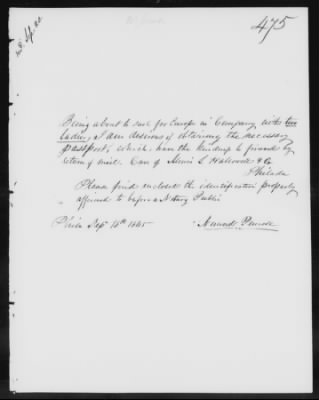 475
Being about to sail for Europe in Company with two
ladies, I am desirous of obtaining the necessary
passport, which have the kindness to forward by
return of mail. Care of Morris L Hallowell & Co
Philada
Please find enclosed the identification properly
affirmed to before a Notary Public
Phila Sep 18th 1865